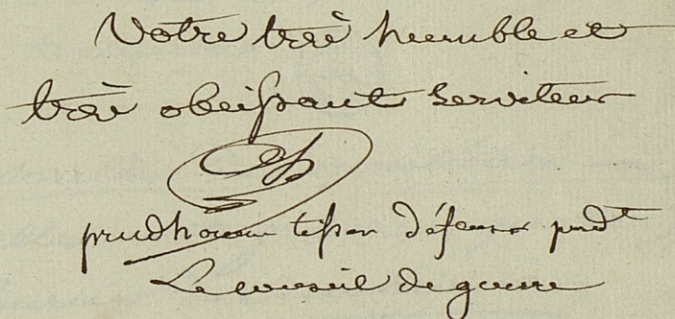 Votre trè humble et
trè obeissant serviteur
prudhomme tissan défenseur pndt
Le conseil de guerre